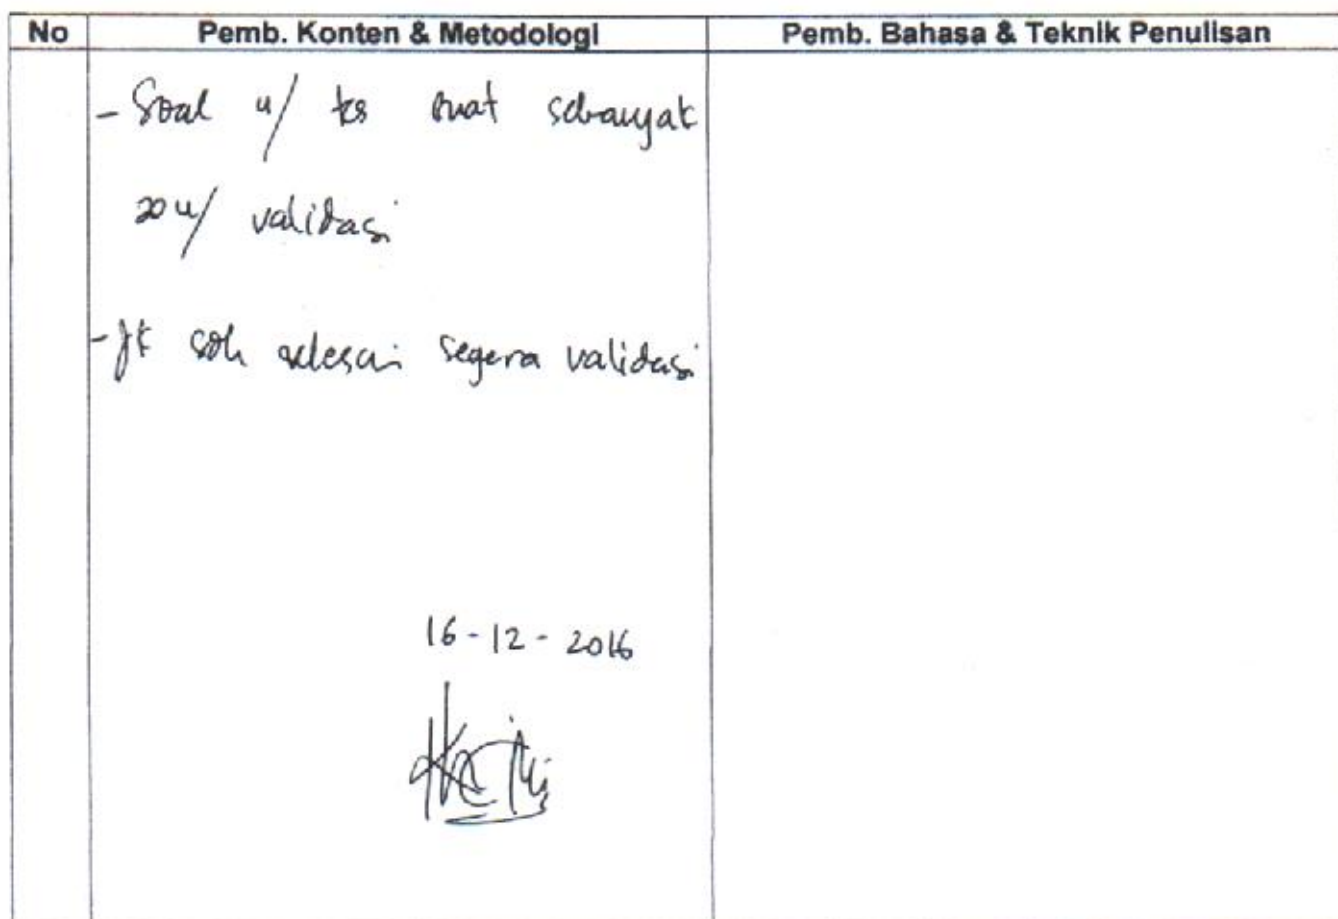 No Pemb. Konten & Metodologi Pemb. Bahasa & Teknik Penulisan
- Soal u/ tes buat sebanyak
20 u/ validasi
- Jk sdh selesai segera validasi
16-12-2016